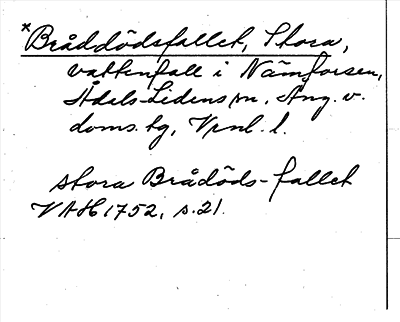 *Bråddödsfallet, Stora,
vattenfall i Nämforsen,
Ådals-Lidens sn, Ång. v.
doms. tg, Vnl. l.
stora Brådöds-fallet
VAH 1752, s. 21.